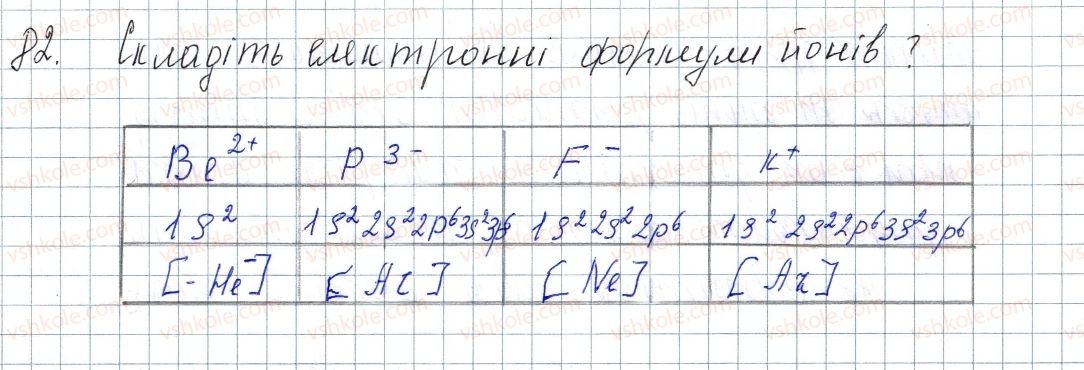 82. Складіть електронні формули йонів?
Be²⁺ P³⁻ F⁻ K⁺
1s² 1s²2s²2p⁶3s²3p⁶ 1s²2s²2p⁶ 1s²2s²2p⁶3s²3p⁶
[He] [Ar] [Ne] [Ar]
vshkole.com